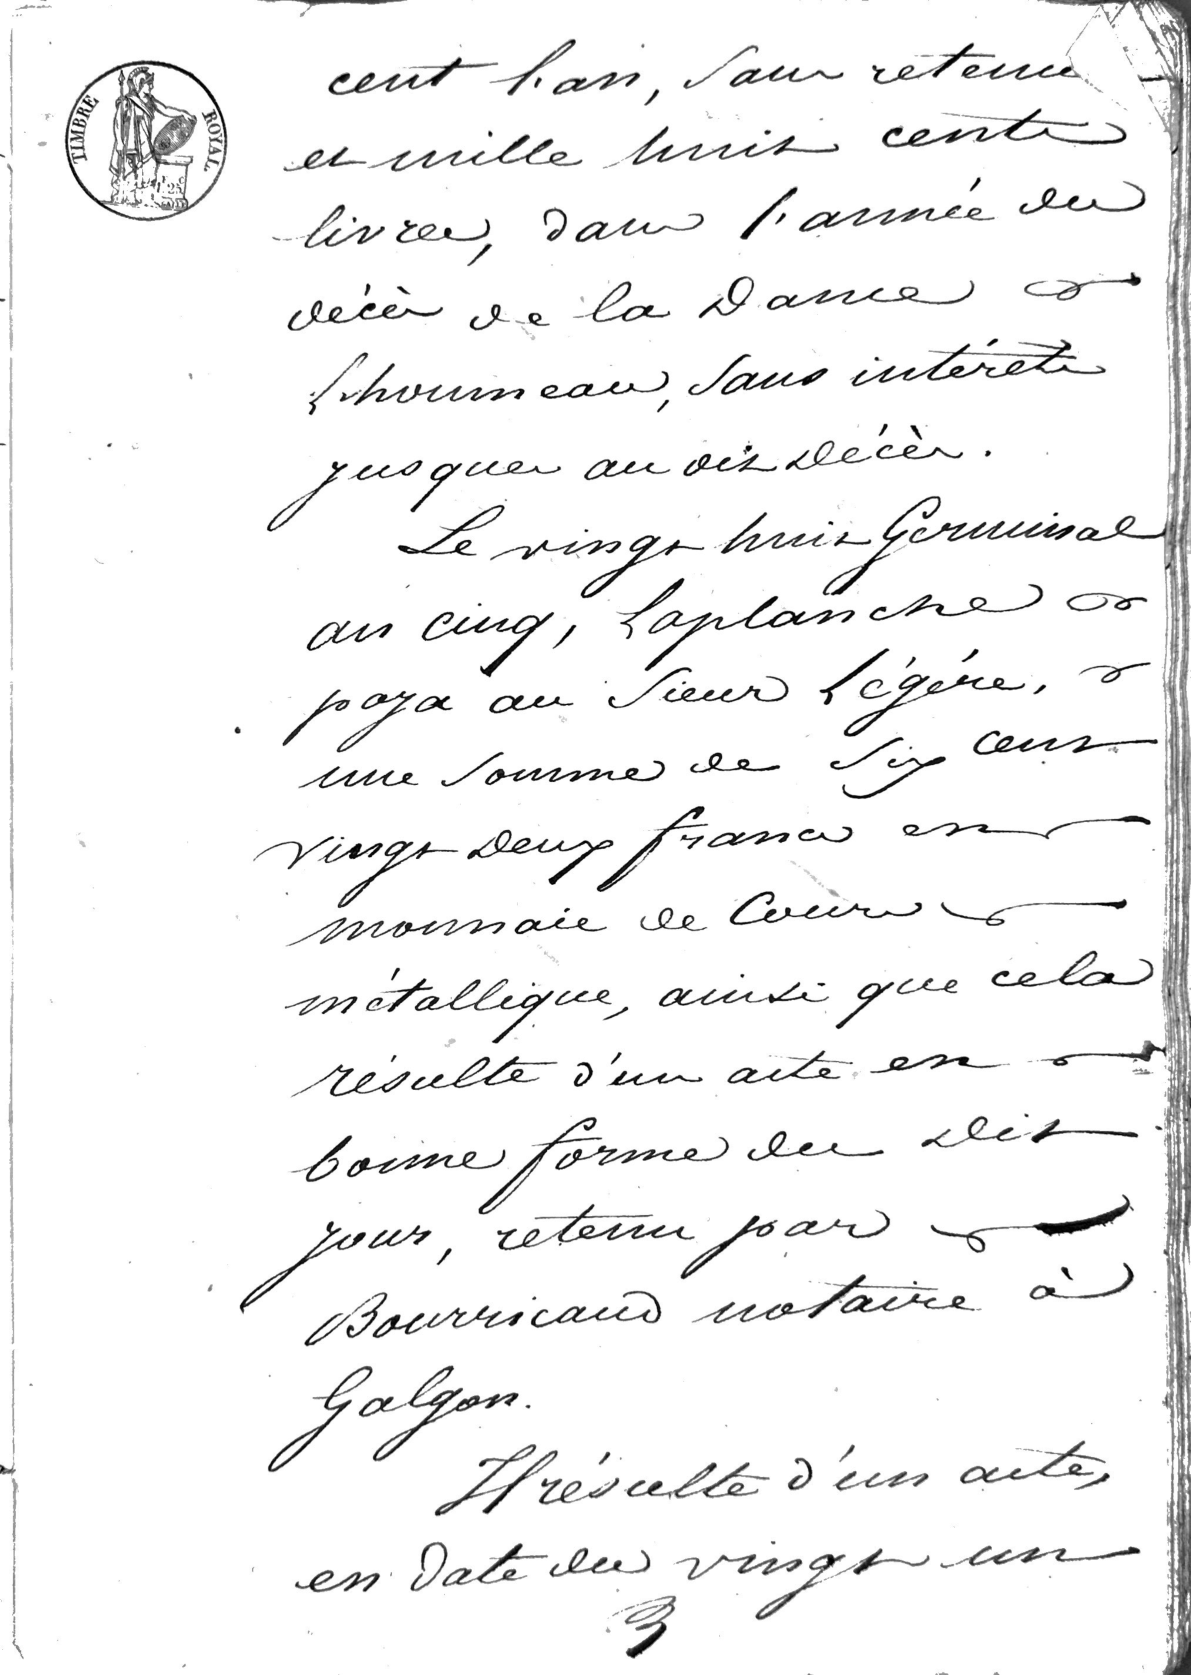 TIMBRE ROYAL
1 F. 25 C
cent l'an, sans retenue
et mille huit cents
livres, dans l'année du
décès de la Dame
Lhoumeau, sans intérêts
jusques au dit décès.
Le vingt huit Germinal
an cinq, Laplanche
paya au sieur Légére,
une somme de six cent
vingt deux francs en
monnaie de cours
métallique, ainsi que cela
résulte d'un acte en
bonne forme du dit
jour, retenu par
Bourricaud notaire à
Galgon.
Il résulte d'un acte,
en date du vingt un
3